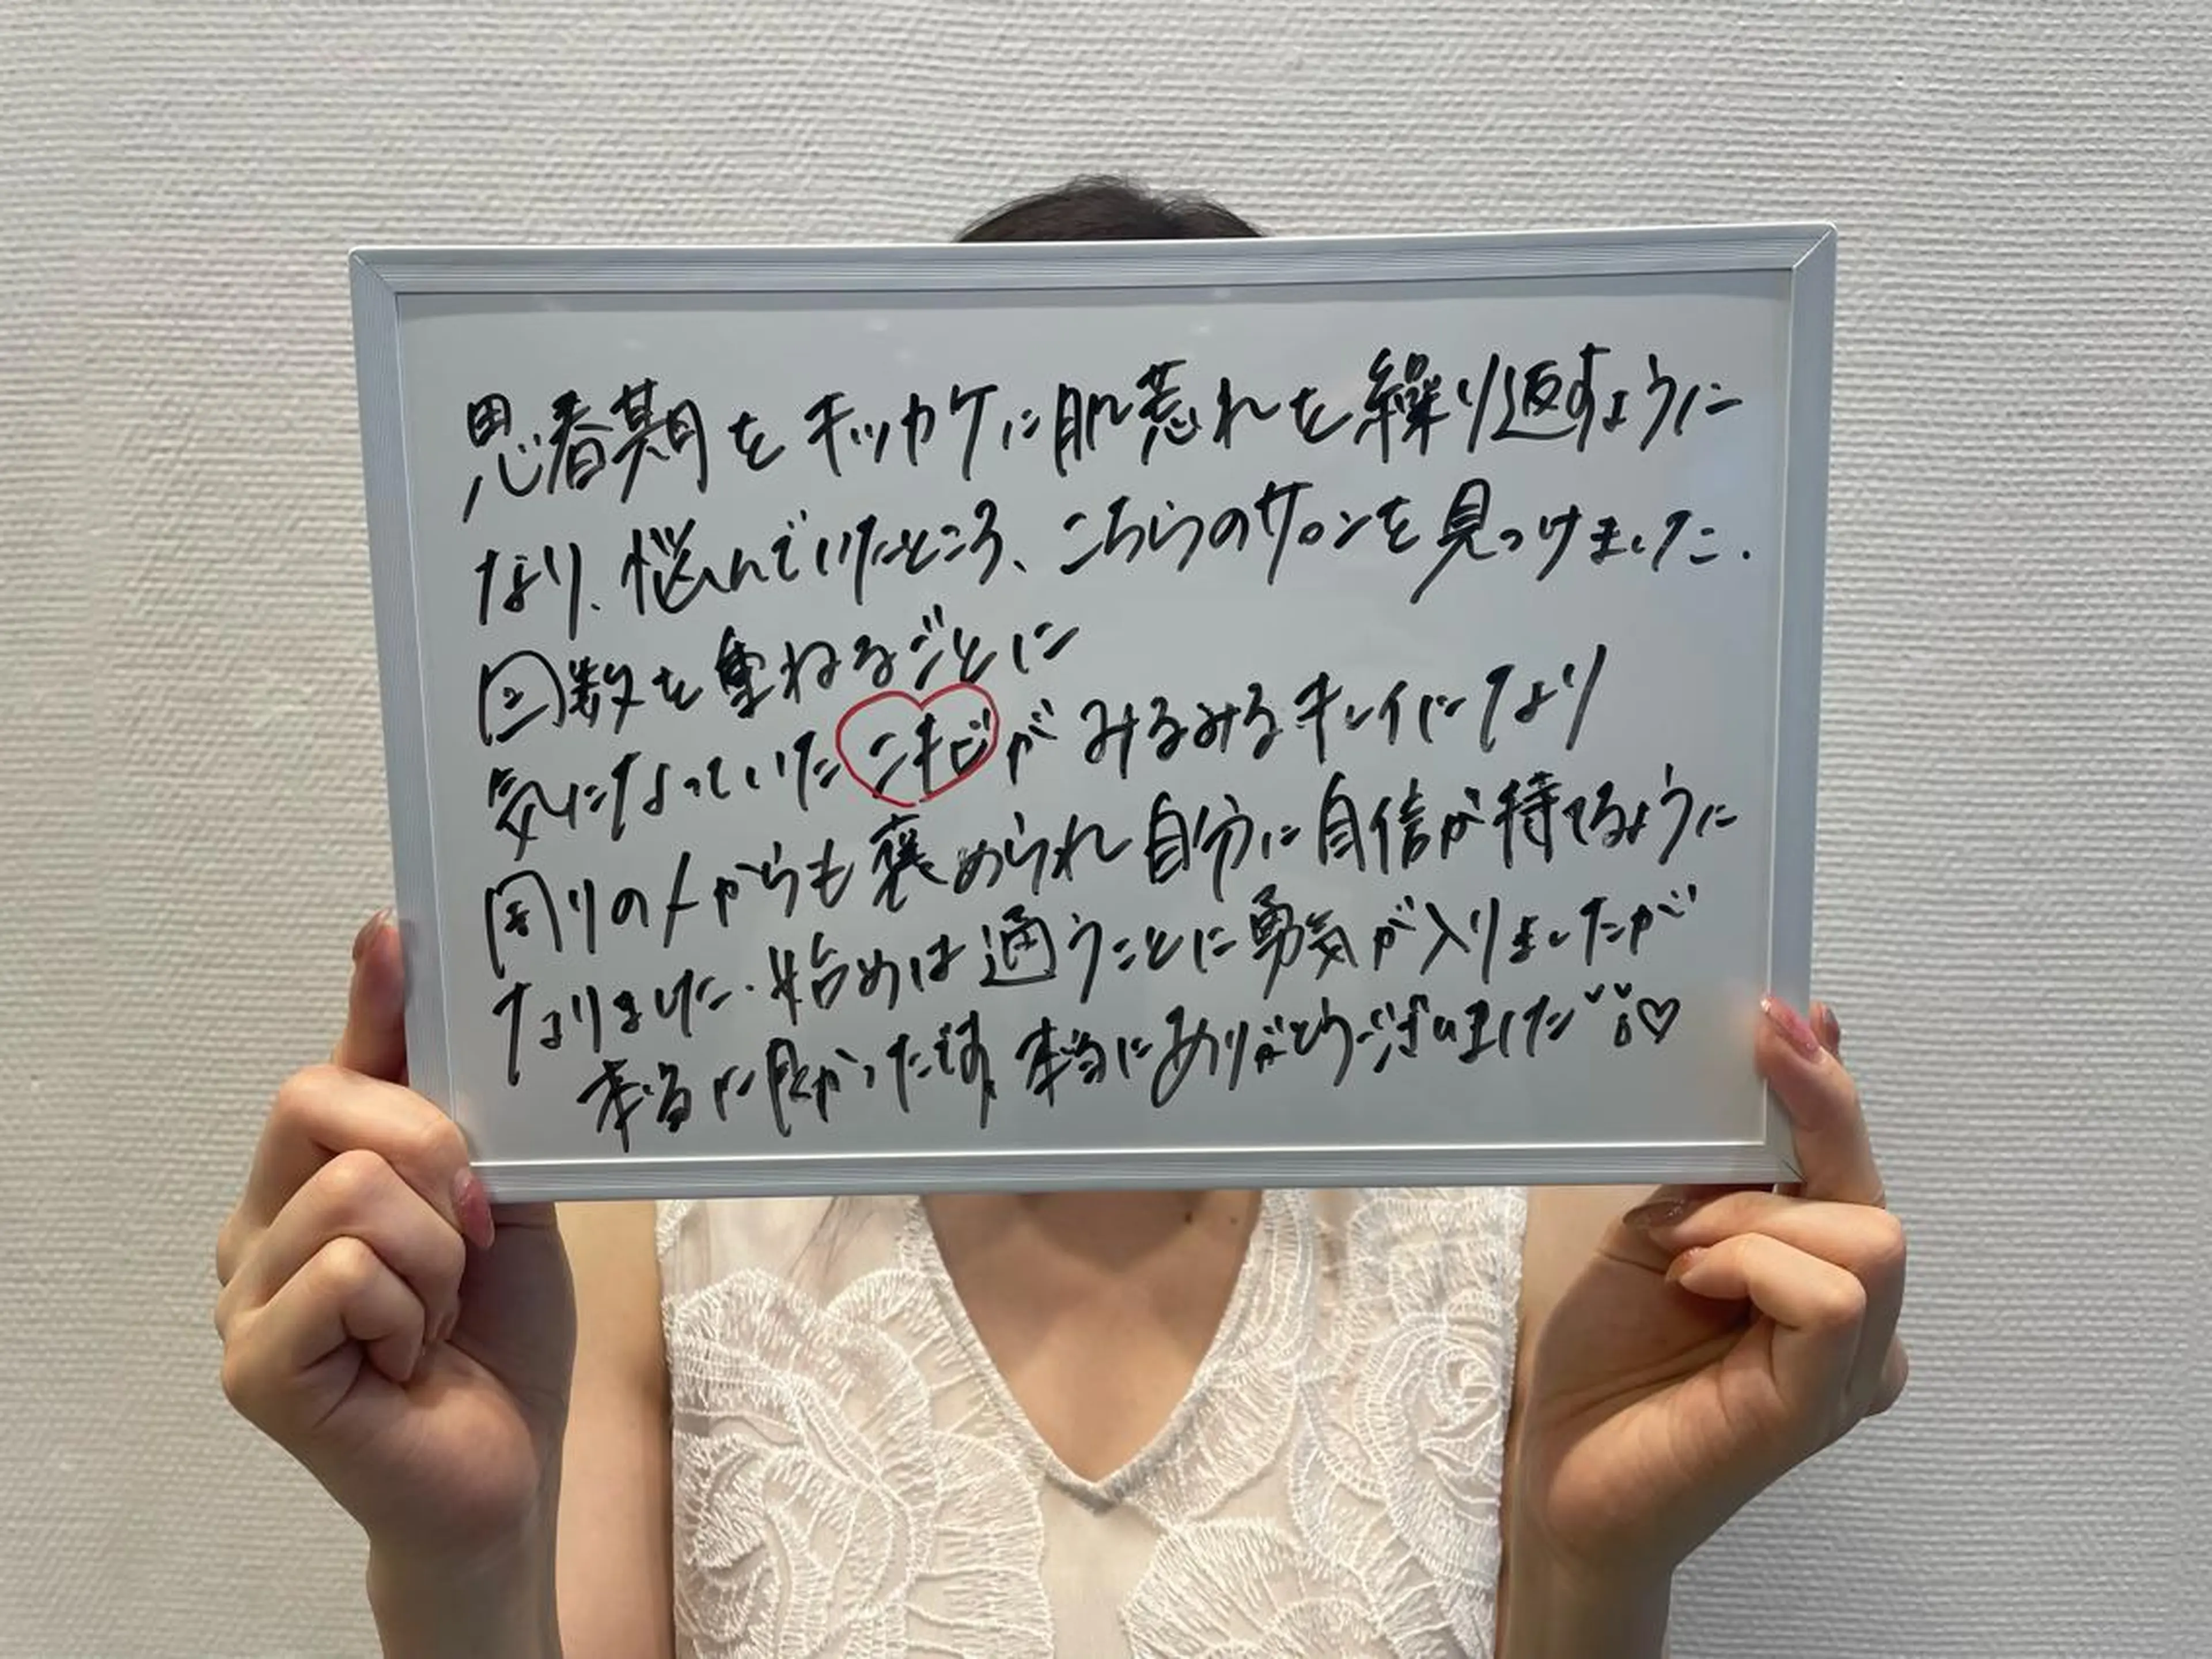 思春期をキッカケに肌荒れを繰り返すように
なり、悩んでいたところ、こちらのサロンを見つけました.
回数を重ねるごとに
気になっていたニキビがみるみるキレイになり
周りの人からも褒められ自分に自信が持てるように
なりました.始めは通うことに勇気が入りましたが
本当に良かったです。本当にありがとうございました♡